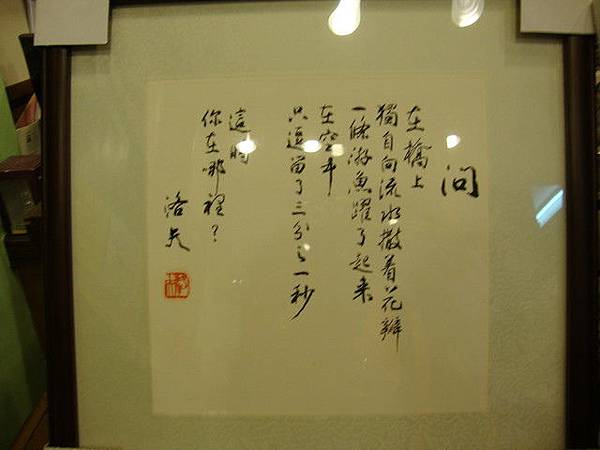 問
在橋上
獨自向流水撒着花瓣
一條游魚躍了起来
在空中
只逗留了三分之一秒
這時
你在哪裡？
洛夫